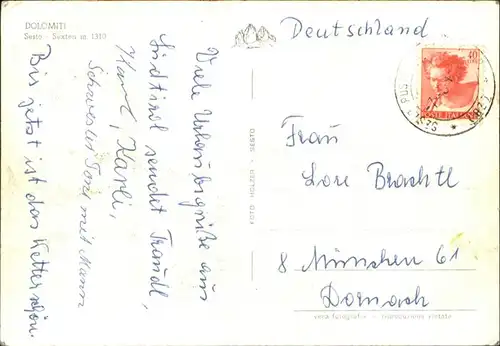 DOLOMITI
Sesto - Sexten m 1310
Viele Urlaubsgrüße aus
Südtirol sendet Traudl,
Karl, Karli,
Schwester Toni mit Mann
Bis jetzt ist das Wetter schön.
FOTO HOLZER - SESTO
Deutschland
40
POSTE ITALIANE
Frau
Lore Brachtl
8 München 61
Dornach
vera fotografia - riproduzione vietata